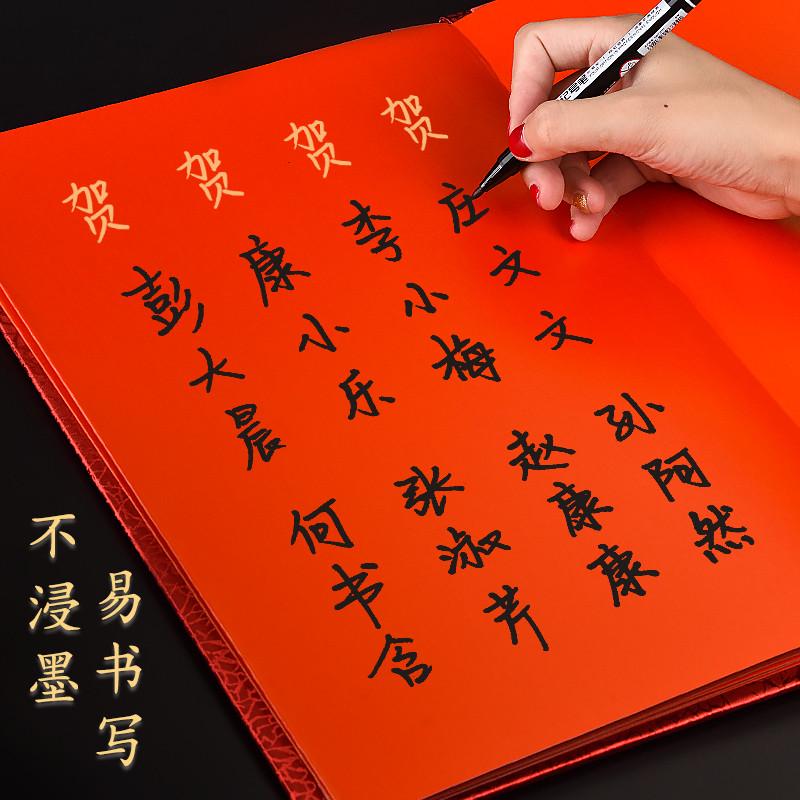 贺 贺 贺 贺
彭大晨
康小乐
李小梅
庄文文
何书含
张淑芹
赵康康
孙阿然
不浸墨
易书写